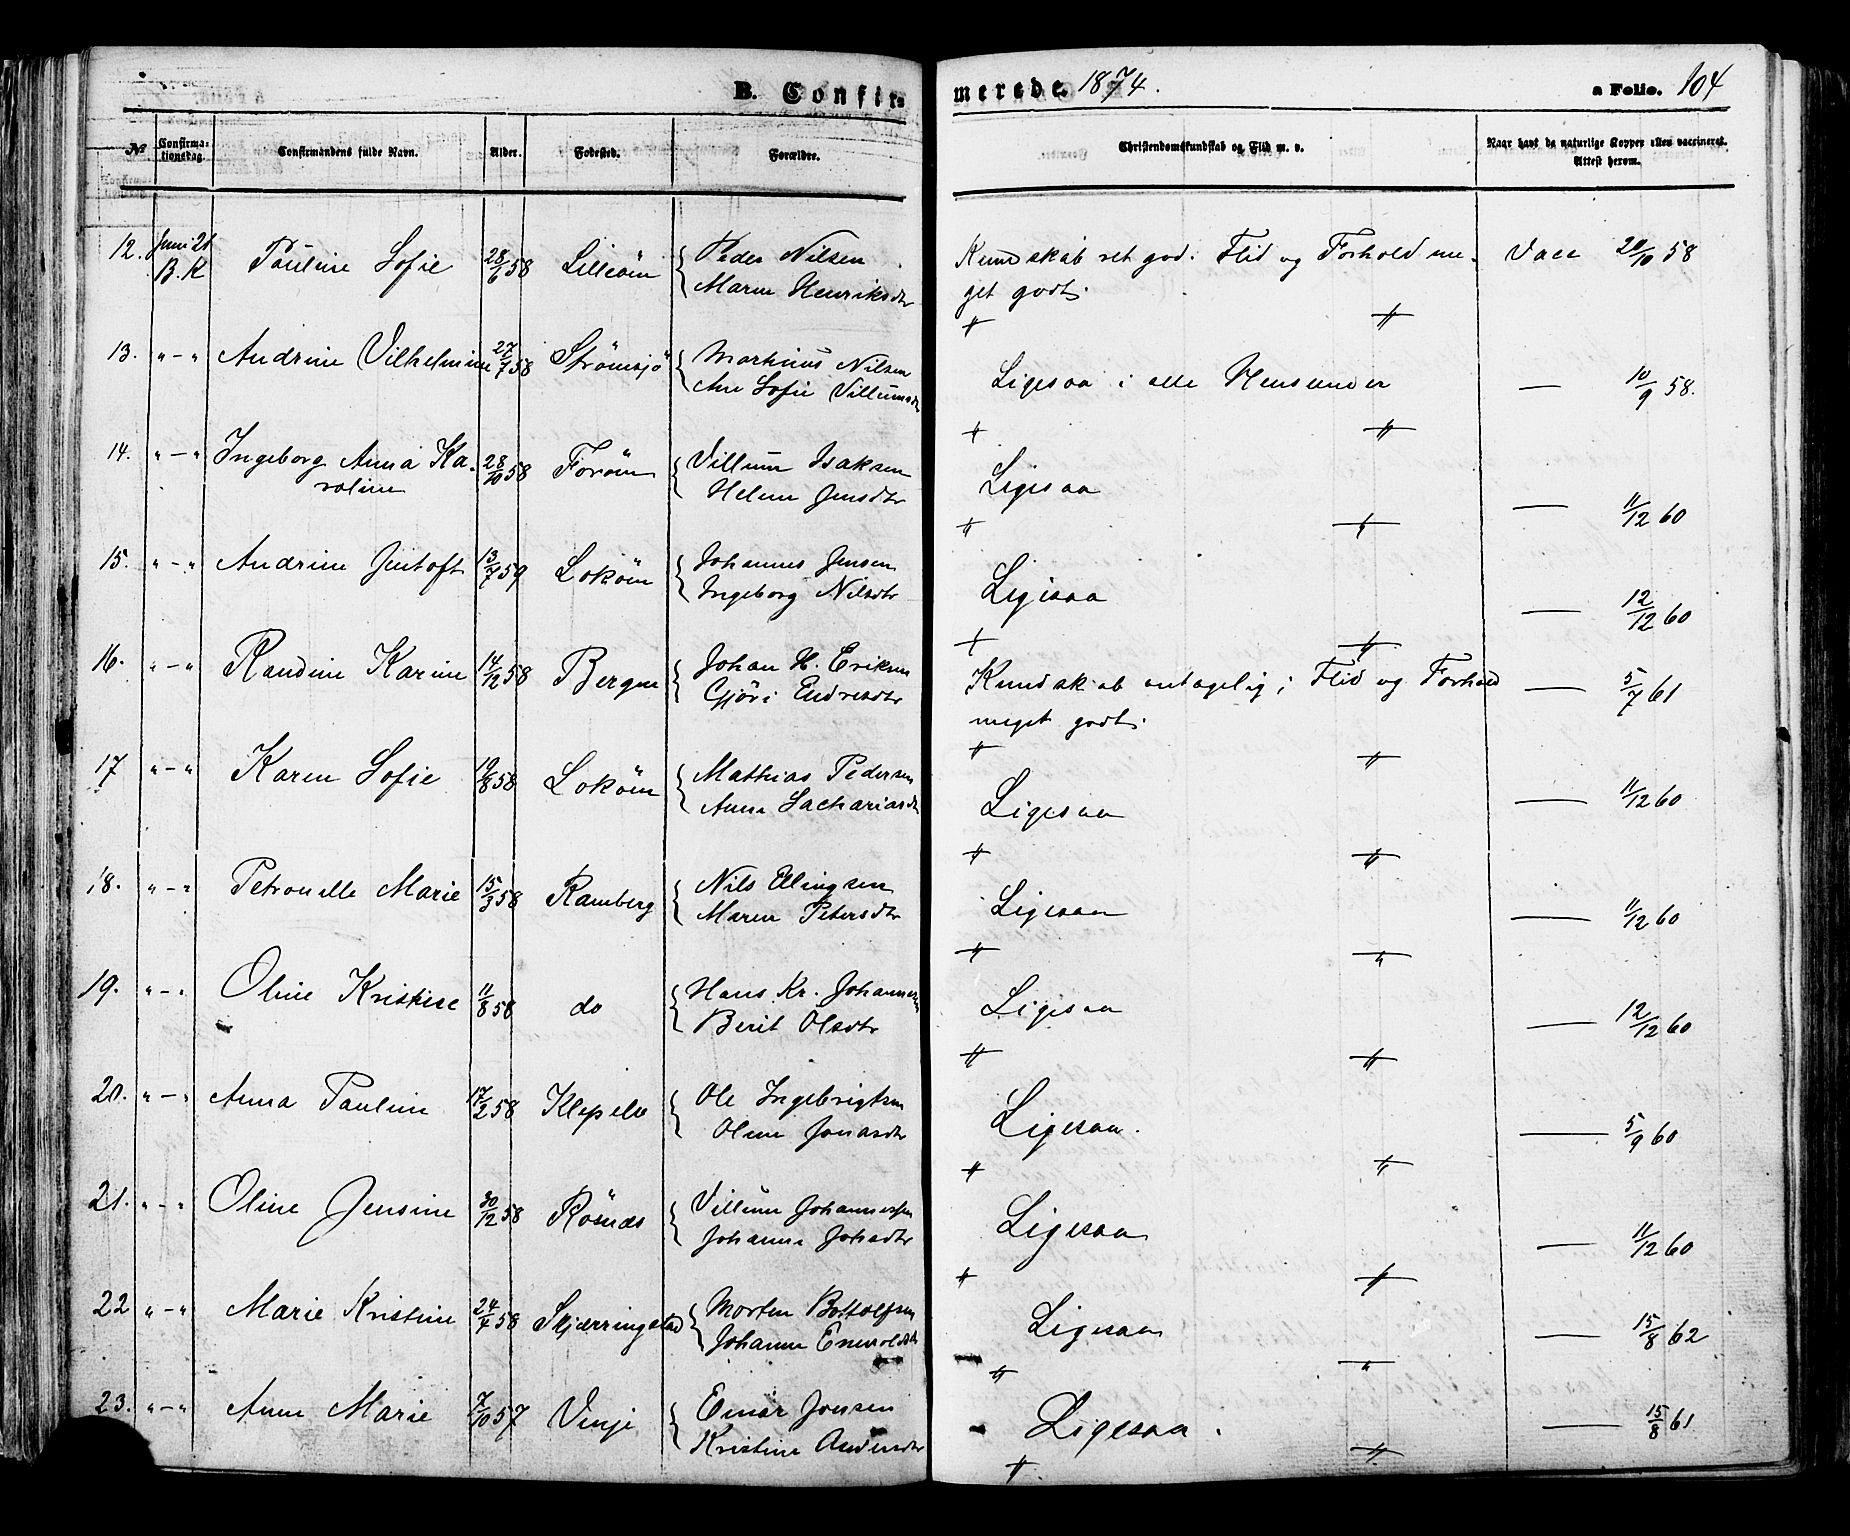 B. Confir-
merede. 1874.
a Folio. 104
№
Confirma-
tionsdag.
Confirmandens fulde Navn.
Alder.
Fødested.
Forældre.
Christendomskundskab og Flid m. v.
Naar havt de naturlige Kopper eller vaccineret.
Attest herom.
12. Juni 21 Pauline Sofie 28/6 58 Lilleöen { Peder Nilsen
B. K { Maren Henriksdtr
Kundskab ret god. Flid og Forhold me-
get godt. Vacc 20/10 58
13. " - " Andrine Vilhelmine 27/7 58 Strömsjö { Martinus Nilsen
{ Ane Sofie Villumsdtr
Ligesaa i alle Henseender — 10/9 58.
14. " - " Ingeborg Anna Ka- 28/10 58 Foröen { Villum Isaksen
roline { Helene Jensdtr
Ligesaa — 11/12 60
15. " - " Andrine Jentoft 13/7 59 Loköen { Johannes Jensen
{ Ingeborg Nilsdtr
Ligesaa — 12/12 60
16. " - " Randine Karine 14/12 58 Bergen { Johan H. Eriksen
{ Gjöri Endresdtr
Kundskab antagelig; Flid og Forhold
meget godt. — 5/7 61
17 " - " Karen Sofie 10/8 58 Loköen { Mathias Pedersen
{ Anne Sachariasdtr
Ligesaa — 11/12 60
18. " - " Petronelle Marie 15/3 58 Ramberg { Nils Ellingsen
{ Maren Petersdtr
Ligesaa — 11/12 60
19. " - " Oline Kristine 11/8 58 do { Hans Kr. Johannesen
{ Berit Olsdtr
Ligesaa — 12/12 60
20. " - " Anna Pauline 17/2 58 Klepelv { Ole Ingebrigtsen
{ Oline Jonasdtr
Ligesaa. — 5/9 60
21. " - " Oline Jensine 30/12 58 Rösnæs { Villum Johannessen
{ Johanna Johsdtr
Ligesaa — 11/12 60
22 " - " Marie Kristine 24/4 58 Skjærringstad { Morten Bottolfsen
{ Johanne Enevoldsdtr
Ligesaa — 15/8 62
23. " - " Anne Marie 7/10 57 Vinje { Einar Jonsen
{ Kristine Andersdtr
Ligesaa. — 15/8 61